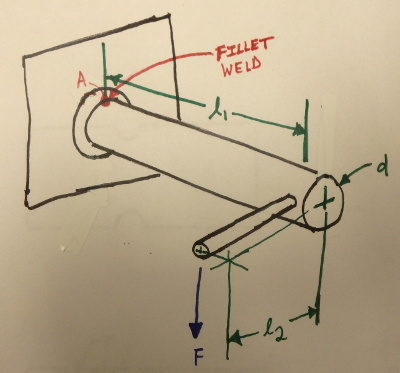 FILLET
WELD
A
l1
d
l2
F